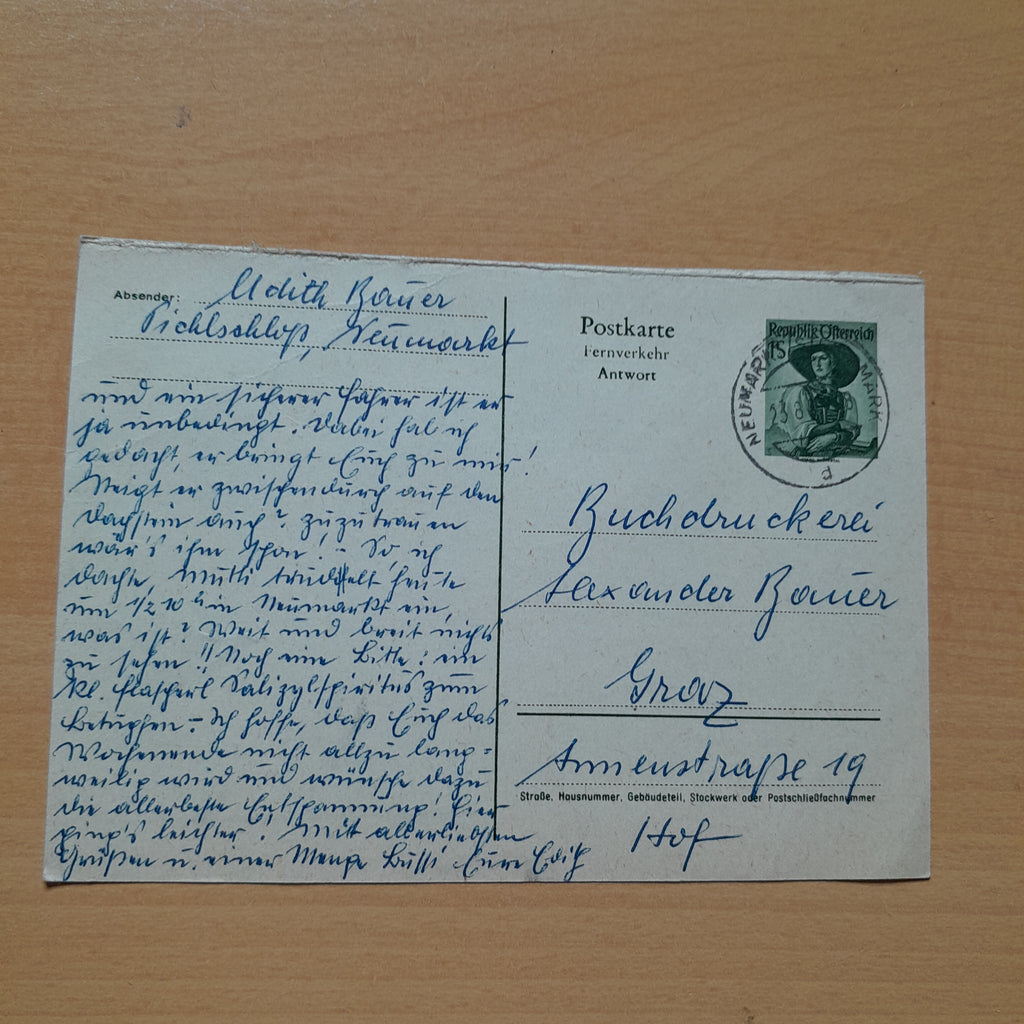 Absender: Udith Bauer
Pichlschloß, Neumarkt
und ein sicherer Fahrer ist er
ja unbedingt. Dabei hab ich
gedacht, er bringt Euch zu mir!
Steigt er zwischendurch auf den
Dachstein auch? Zuzutrauen
wär's ihm schon! - So, ich
dachte, Mutti trudelt heute
um 1/2 10 h in Neumarkt ein,
was ist? Weit und breit nichts
zu sehen!! Noch eine Bitte: ein
kl. Flascherl Salizylspiritus zum
Betupfen. - Ich hoffe, daß Euch das
Wochenende nicht allzu lang=
weilig wird und wünsche dazu
die allerbeste Entspannung! Hier
ging's leichter! Mit allerliebsten
Grüßen u. einer Menge Bussi Eure Edith
Postkarte
Fernverkehr
Antwort
Republik Österreich
1S
NEUMARKT
Buchdruckerei
Alexander Bauer
Graz
Annenstraße 19
Straße, Hausnummer, Gebäudeteil, Stockwerk oder Postschließfachnummer
Hof